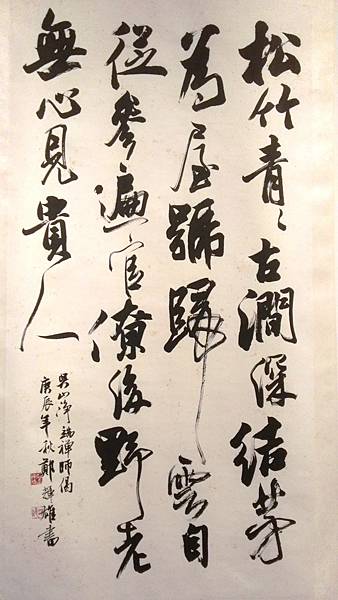 松竹青〻古澗深結茅
為屋號歸雲自
從參遍官僚後野老
無心見貴人
吳山淨端禪師偈
庚辰年秋鄭雄書